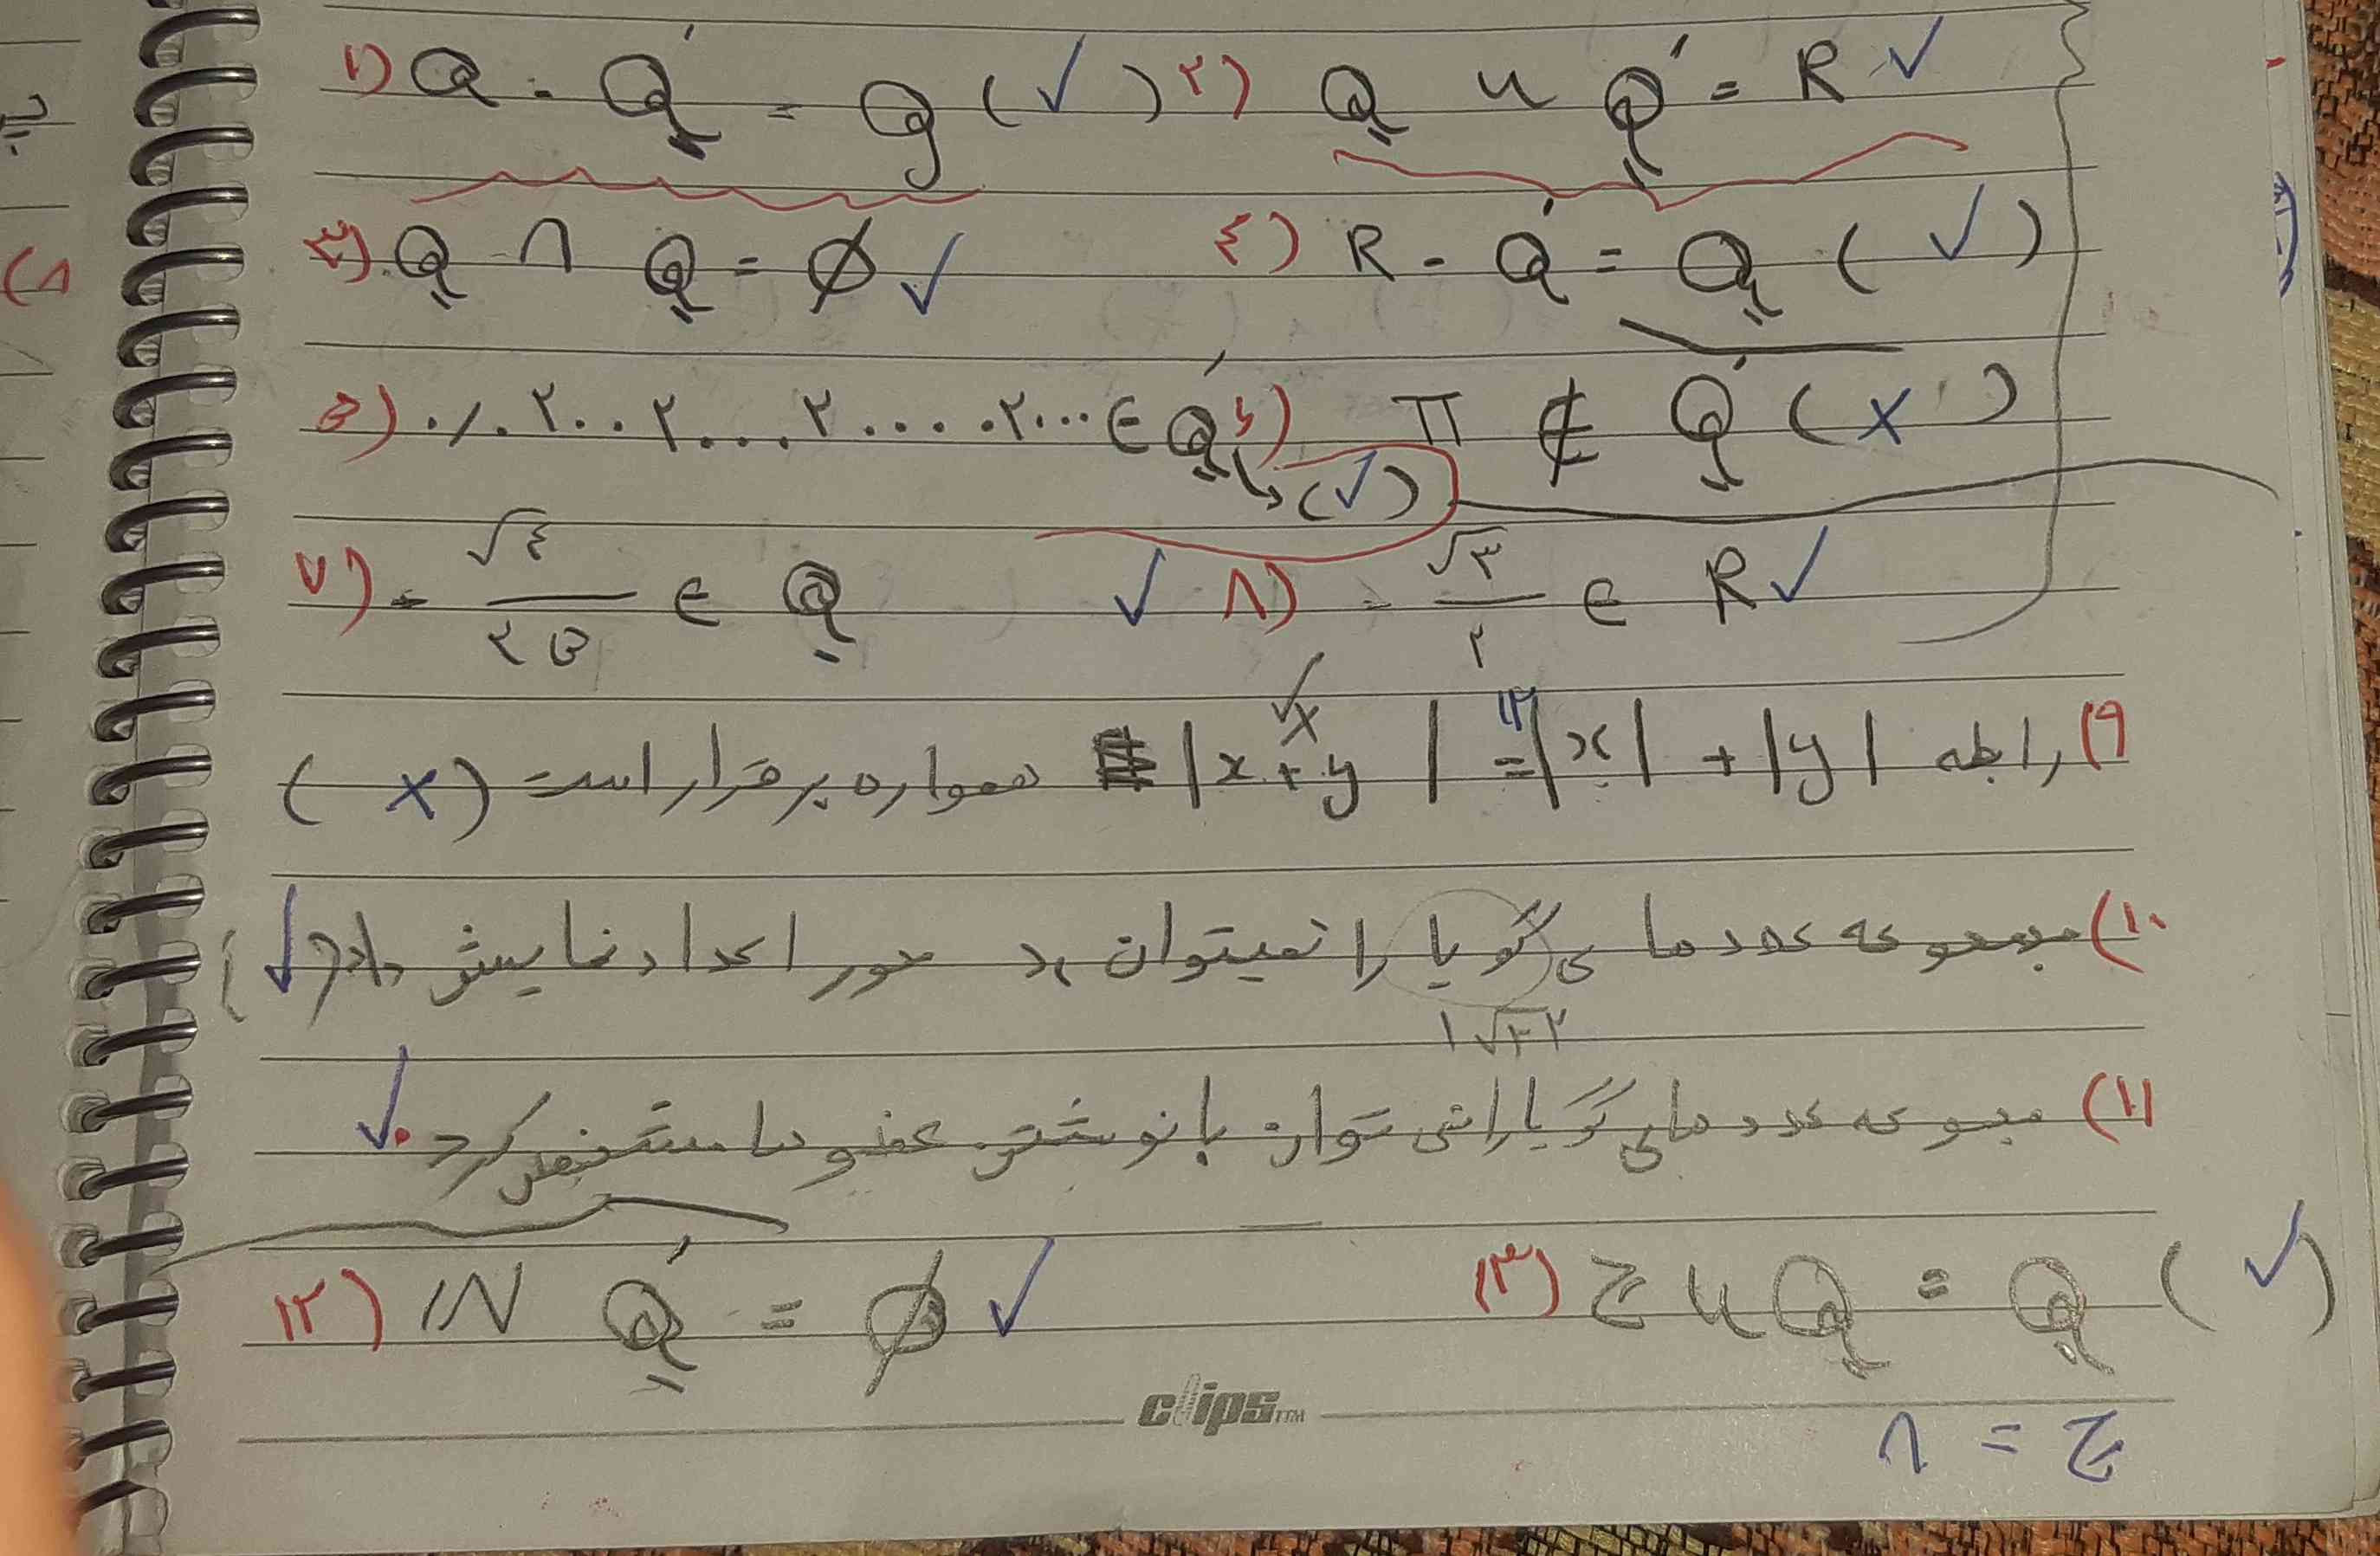 ۱) Q - Q' = Q (✓) ۲) Q ∪ Q' = R ✓
۳) Q ∩ Q' = ∅ ✓ ۴) R - Q' = Q (✓)
۵) ۰/۰۲۰۰۲۰۰۰۲۰۰۰۰۲... ∈ Q' (✓) ۶) π ∉ Q' (×)
۷) - √۴/۲۵ ∈ Q ✓ ۸) - √۳/۲ ∈ R ✓
۹) رابطه |x + y| = |x| + |y| همواره برقرار است (×)
۱۰) مجموعه عددهای گویا را نمیتوان بر محور اعداد نمایش داد (✓)
۱۱) مجموعه عددهای گویا را نمی توان با نوشتن عضوها مشخص کرد. ✓
۱۲) N Q' = ∅ ✓ ۱۳) Z ∪ Q = Q (✓)
clips TTM
∩ = Z